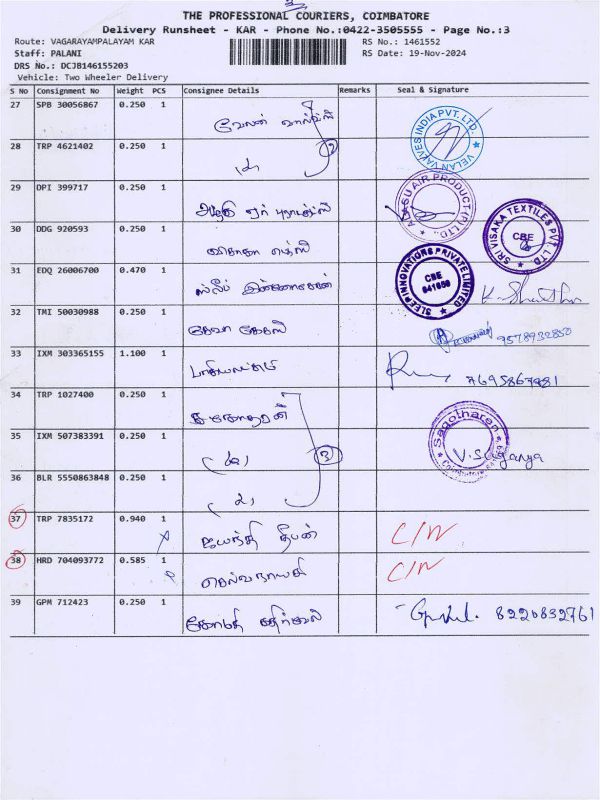 THE PROFESSIONAL COURIERS, COIMBATORE
Delivery Runsheet - KAR - Phone No.:0422-3505555 - Page No.:3
Route: VAGARAYAMPALAYAM KAR
RS No.: 1461552
Staff: PALANI
RS Date: 19-Nov-2024
DRS No.: DCJB146155203
Vehicle: Two Wheeler Delivery
S No Consignment No Weight PCS Consignee Details Remarks Seal & Signature
27 SPB 30056867 0.250 1 வேலன் வால்வ்ஸ் VELAN VALVES INDIA PVT. LTD.
28 TRP 4621402 0.250 1 2
29 DPI 399717 0.250 1 AIR PRODUCT (I) LTD.,
30 DDG 920593 0.250 1 SRI VISAKA TEXTILES PVT. LTD CBE
31 EDQ 26006700 0.470 1 ஸ்லீப் SLEEP INNOVATIONS PRIVATE LIMITED CBE 641659
32 TMI 50030988 0.250 1 9578932850
33 IXM 303365155 1.100 1 பாக்கியலட்சுமி
34 TRP 1027400 0.250 1
35 IXM 507383391 0.250 1 3 Sagotharan Coimbatore V.Suganya
36 BLR 5550863848 0.250 1
37 TRP 7835172 0.940 1 ஜெயந்தி தீபன் C/N
38 HRD 704093772 0.585 1 செல்வநாயகி C/N
39 GPM 712423 0.250 1 கோமதி கதிர்வேல் 8220832761